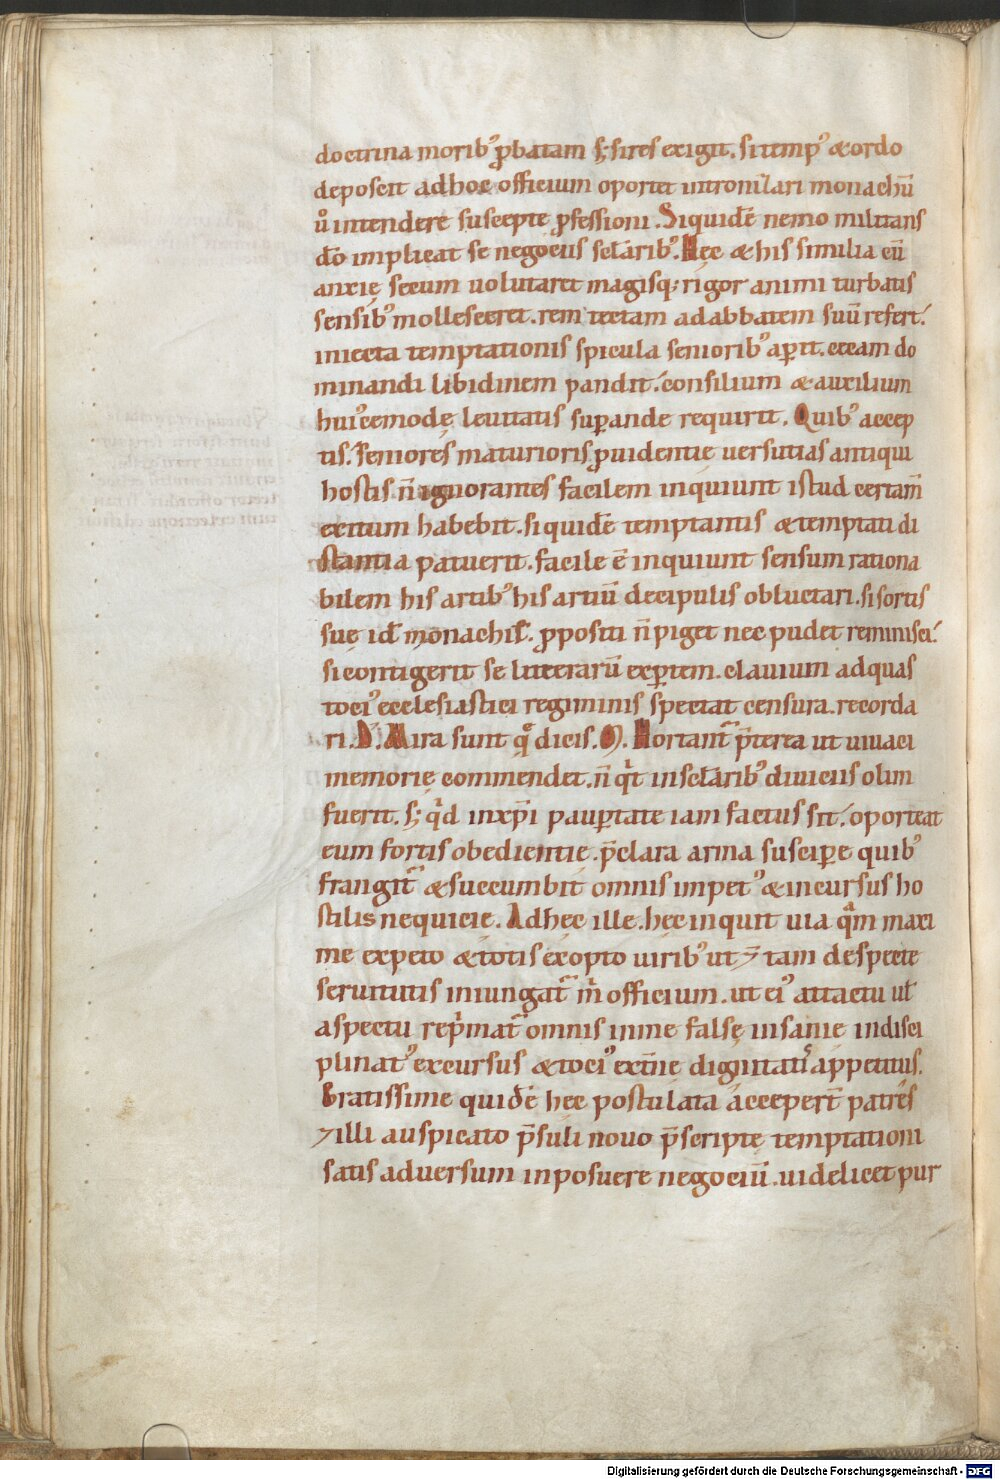 doctrina morib᾽ ꝓbatam s; si res exigit. si temp᾽ & ordo
deposcit ad hoc officium oportet introni\ari monachū
ů intendere suscepte ꝓfessioni. Siquidē nemo militans
dō implicat se negociis sclarib᾽. Hęc & his similia cū
anxię secum volutaret magisq; rigor animi turbatis
sensib᾽ mollesceret. rem tectam ad abbatem suū refert.
iniecta temptationis spicula seniorib᾽ aꝑit. ceam do
minandi libidinem pandit. consilium & auxilium
hui᾽cemodę levitatis suꝑande requirit. Quib᾽ accep
tis. Seniores maturioris ꝓvidentię versutias antiqui
hostis n̄ ignorantes facilem inquiunt istud certam̄
exitum habebit. siquidē temptantis & temptati di
stantia patuerit. facile ē inquiunt sensum rationa
bilem his artib᾽ his artiū decipulis obluctari. si sortis
suę id÷ monachił. ꝓpositi n̄ piget nec pudet reminisci.
si contigerit se litterarū exꝑtem. clavium ad quas
toci᾽ ecclesiastici regiminis spectat censura. recorda
ri. D᾽. Mira sunt q̊ dicis. M. Hortant᷑ p̄terea ut vivaci
memorię commendet. n̄ qͥt in sclarib᾽ diviciis olim
fuerit. s; qͥd in xp̄i pauꝑtate iam factus sit. oporteat
eum fortis obedientię. p̄clara arma susciꝑe quib᾽
frangit᷑ & succumbit omnis impet᾽ & incursus ho
stilis nequicie. Ad hęc ille. hęc inquit via qᵃm maxi
me expeto & totis exopto virib᾽ ut ⁊ tam despecte
servitutis iniungat᷑ m̊ officium. ut ei᾽ attactu vł
aspectu repͥmat᷑ omnis inme falsę insanie indisci
plinat᾽ excursus & toci᾽ ext̄ne dignitatis appetitus.
Gratissime quidē hec postulata acceper̄t patres
⁊ illi auspicato p̄suli novo p̄scriptę temptationi
satis adversum inposuere negociū. videlicet pur
Digitalisierung gefördert durch die Deutsche Forschungsgemeinschaft - DFG